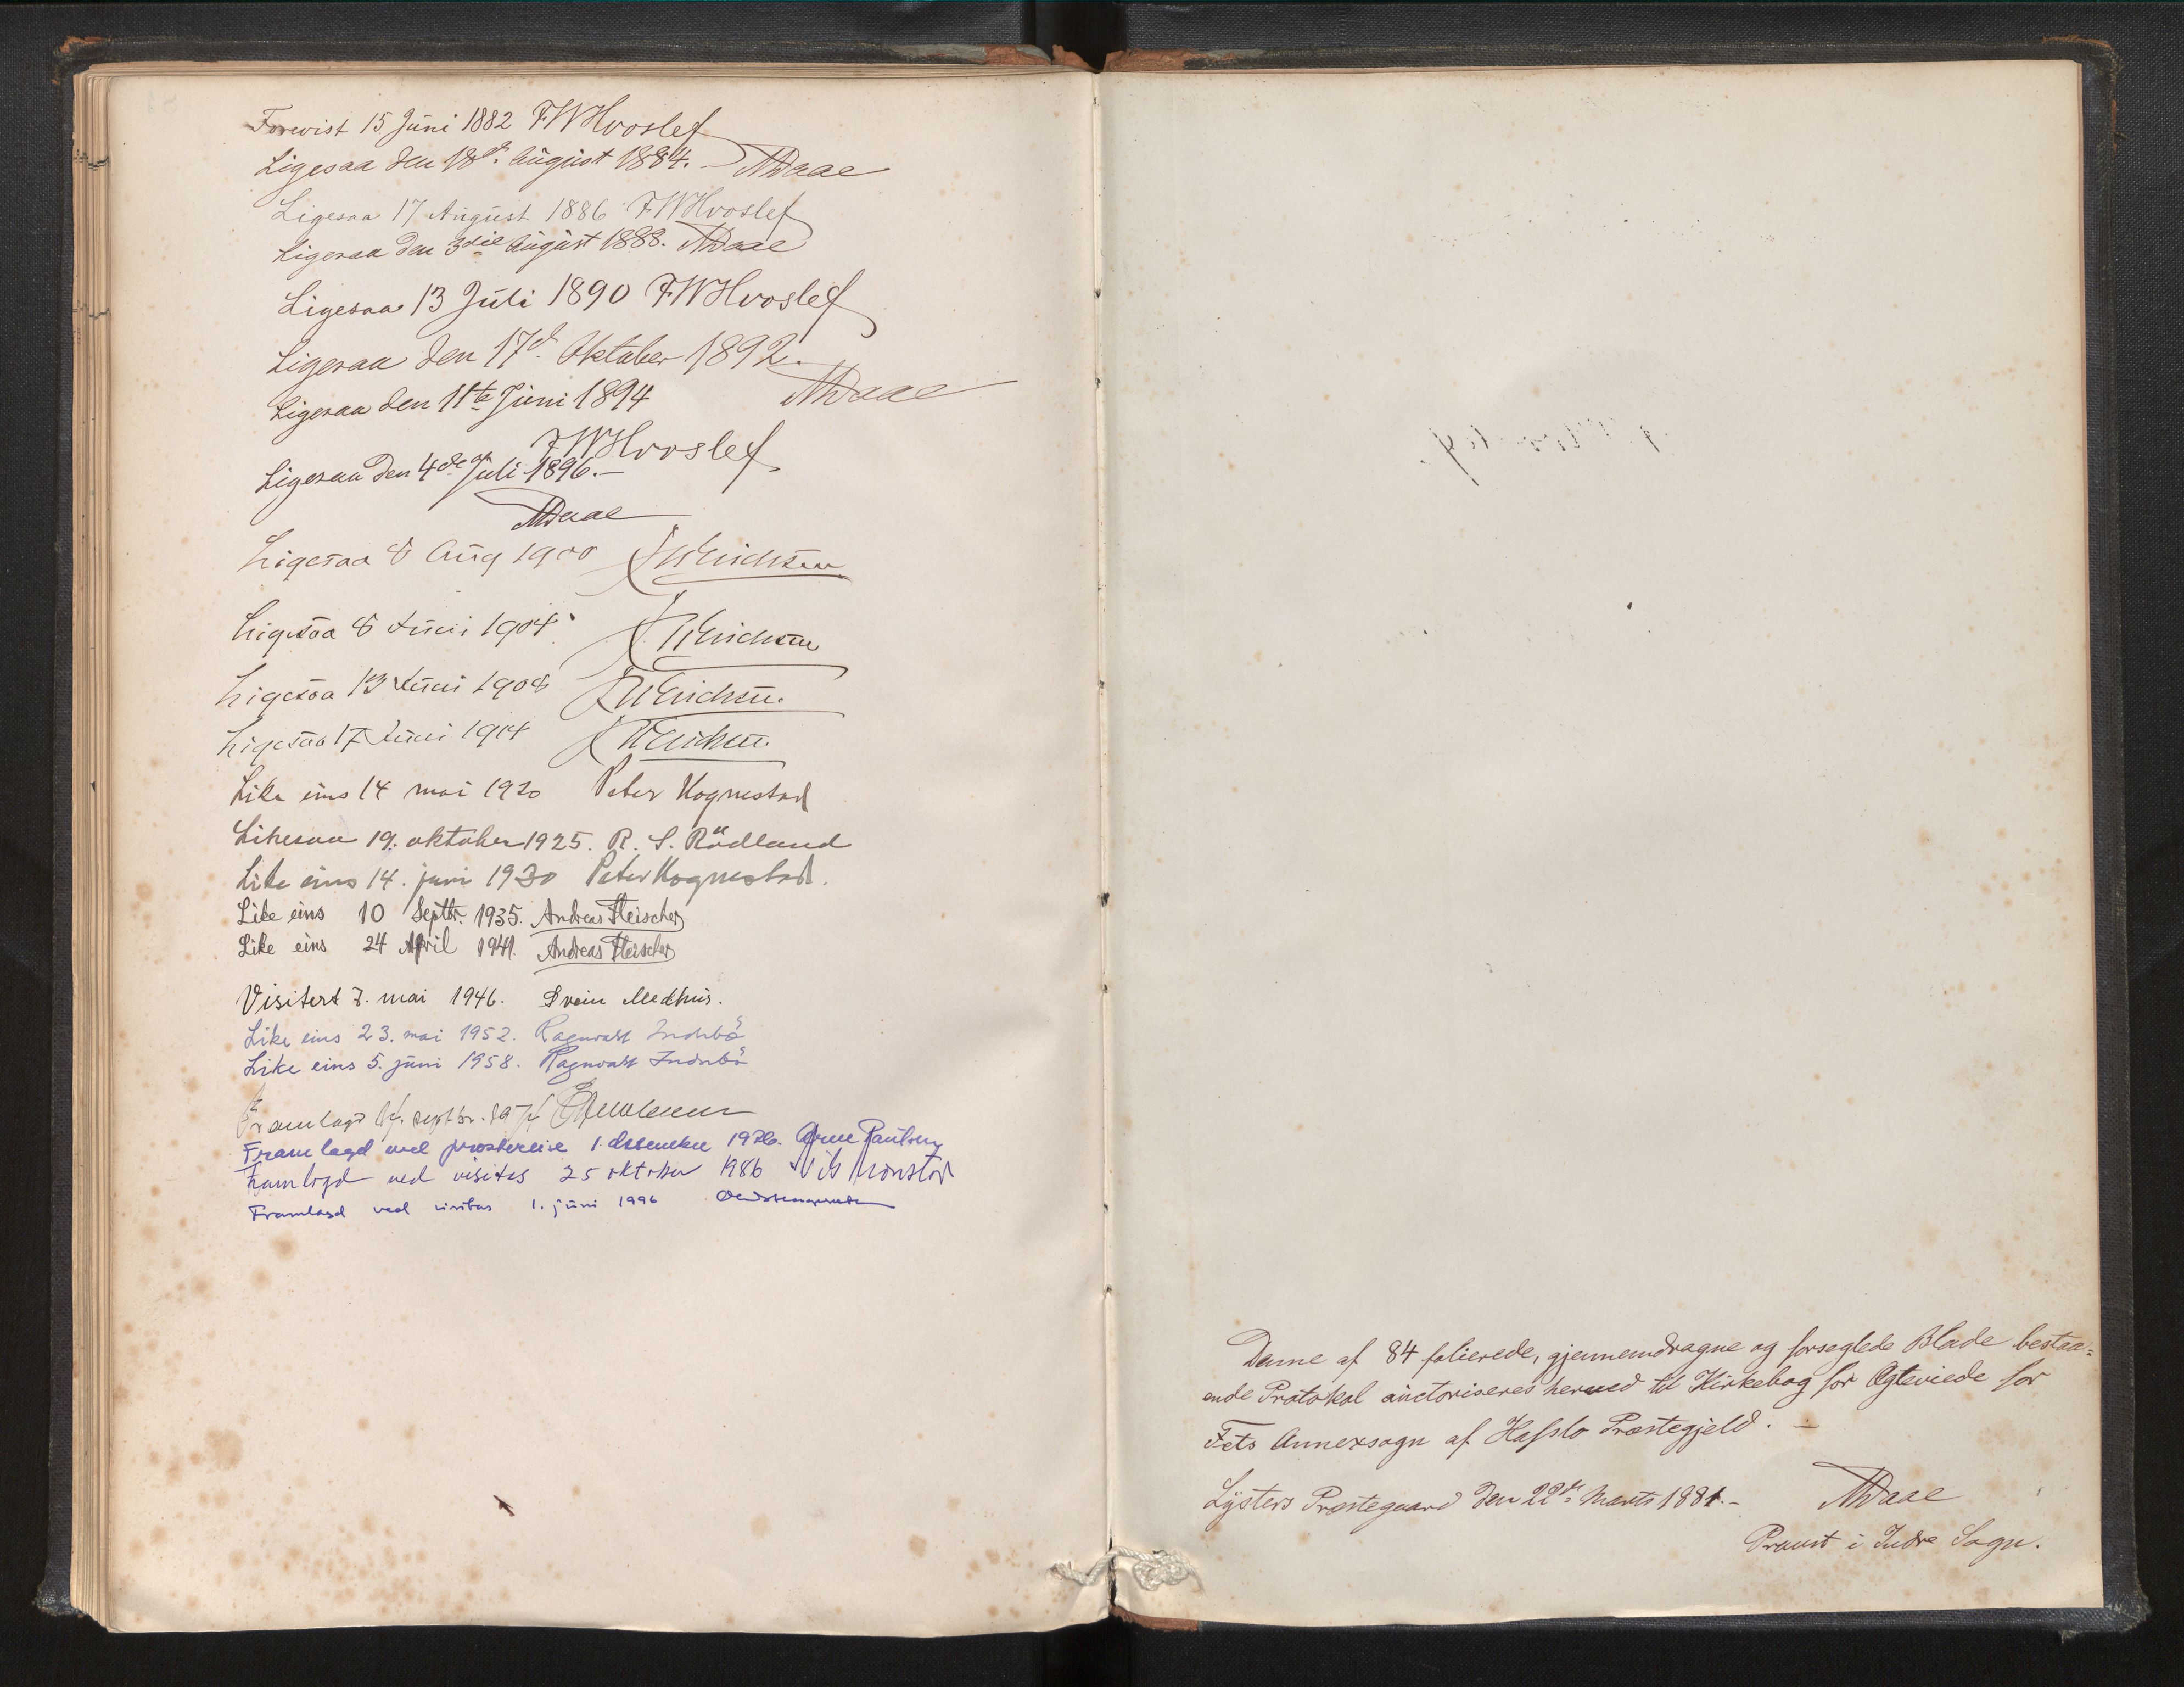 Forevist 15 Juni 1882 FWHvoslef
Ligesaa den 18de August 1884. – MDaae
Ligesaa 17 August 1886 FWHvoslef
Ligesaa den 3die August 1888. MDaae
Ligesaa 13 Juli 1890 FWHvoslef
Ligesaa den 17d. Oktober 1892.
MDaae
Ligesaa den 11te Juni 1894
FWHvoslef
Ligesaa den 4de Juli 1896. –
MDaae
Ligesaa 8 Aug 1900 Erichsen
Ligesaa 8 Juni 1904 Erichsen
Ligesaa 13 Juni 1908 Erichsen.
Ligesaa 17 Juni 1914 Erichsen.
Like eins 14 mai 1920 Peter Hognestad
Likesaa 19. oktober 1925. R. S. Rödland
Like eins 14. juni 1930 Peter Hognestad.
Like eins 10 Septbr. 1935. Andreas Fleischer
Like eins 24 April 1941. Andreas Fleischer
Visitert 7. mai 1946. Svein Medhus.
Like eins 23. mai 1952. Ragnvald Indrebö
Like eins 5. juni 1958. Ragnvald Indrebö
Framlagd septbr.
Framlagd ved prostereise 1. desember 1976. Arne Paulsen
Framlagd ved visitas 25 oktober 1986
Framlagd ved visitas 1. juni 1996
Denne af 84 folierede, gjennemdragne og forseglede Blade bestaa=
ende Protokol auctoriseres herved til Kirkebog for Ægteviede for
Fets Annexsogn af Hafslo Præstegjeld. –
Lysters Præstegaard den 22de Marts 1881. – MDaae
Provst i Indre Sogn.